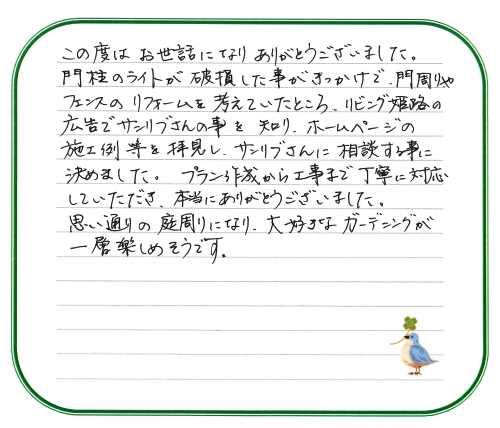 この度は お世話になり ありがとうございました。
門柱のライトが 破損した事がきっかけで、門周りや
フェンスの リフォームを 考えていたところ、リビング姫路の
広告でサンリブさんの事を 知り、ホームページの
施工例等を拝見し、サンリブさんに相談する事に
決めました。 プラン作成から工事まで丁寧に対応
していただき、本当にありがとうございました。
思い通りの庭周りになり、大好きなガーデニングが
一層楽しめそうです。